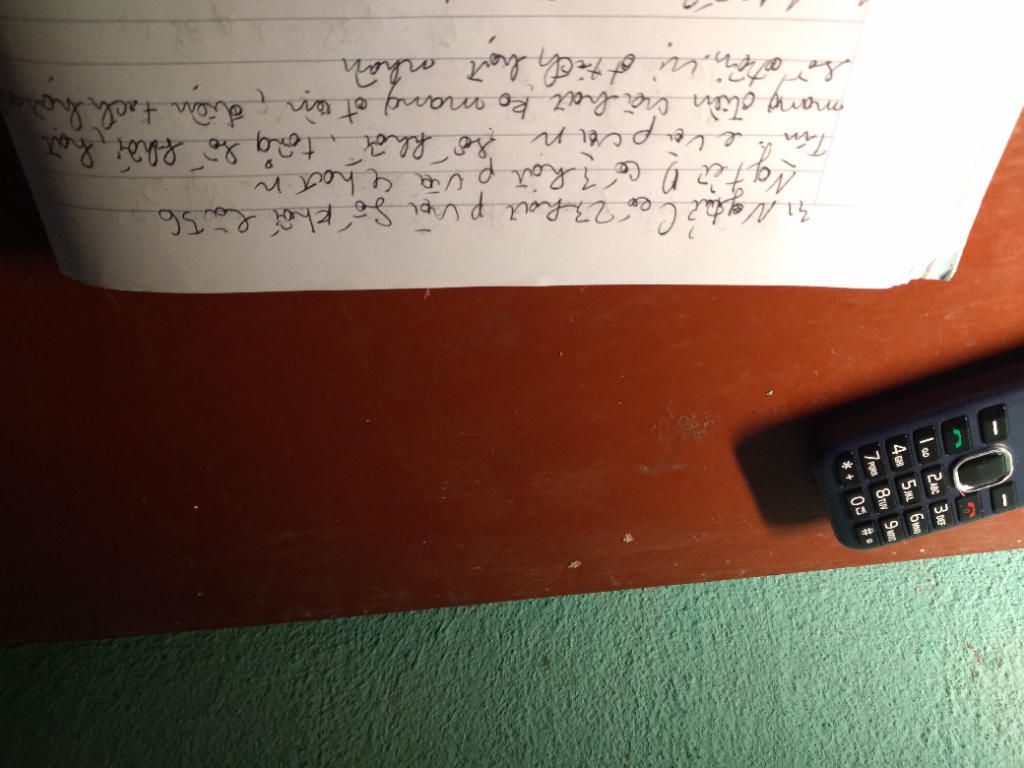 3, Ngtử C có 23 hạt p với số khối là 56
Ngtử D có 3 hạt p và 4 hạt n
Tìm e và p và n số khối, tổng số khối, hạt
mang điện và hạt ko mang điện, điện tích hạt
số đơn vị đtích hạt nhân
1 ∞
2 ABC
3 DEF
4 GHI
5 JKL
6 MNO
7 PQRS
8 TUV
9 WXYZ
* +
0
#